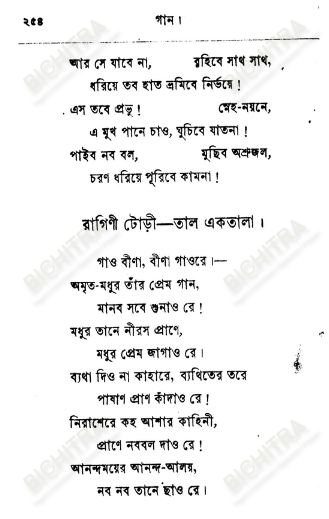 ২৫৪ গান।
আর সে যাবে না, রহিবে সাথ সাথ,
ধরিয়ে তব হাত ভ্রমিবে নির্ভয়ে!
এস তবে প্রভু! স্নেহ-নয়নে,
এ মুখ পানে চাও, ঘুচিবে যাতনা!
পাইব নব বল, মুছিব অশ্রুজল,
চরণ ধরিয়ে পূরিবে কামনা!
রাগিণী টোড়ী—তাল একতালা।
গাও বীণা, বীণা গাওরে।—
অমৃত-মধুর তাঁর প্রেম গান,
মানব সবে শুনাও রে!
মধুর তানে নীরস প্রাণে,
মধুর প্রেম জাগাও রে।
ব্যথা দিও না কাহারে, ব্যথিতের তরে
পাষাণ প্রাণ কাঁদাও রে!
নিরাশেরে কহ আশার কাহিনী,
প্রাণে নববল দাও রে!
আনন্দময়ের আনন্দ-আলয়,
নব নব তানে ছাও রে।
BICHITRA